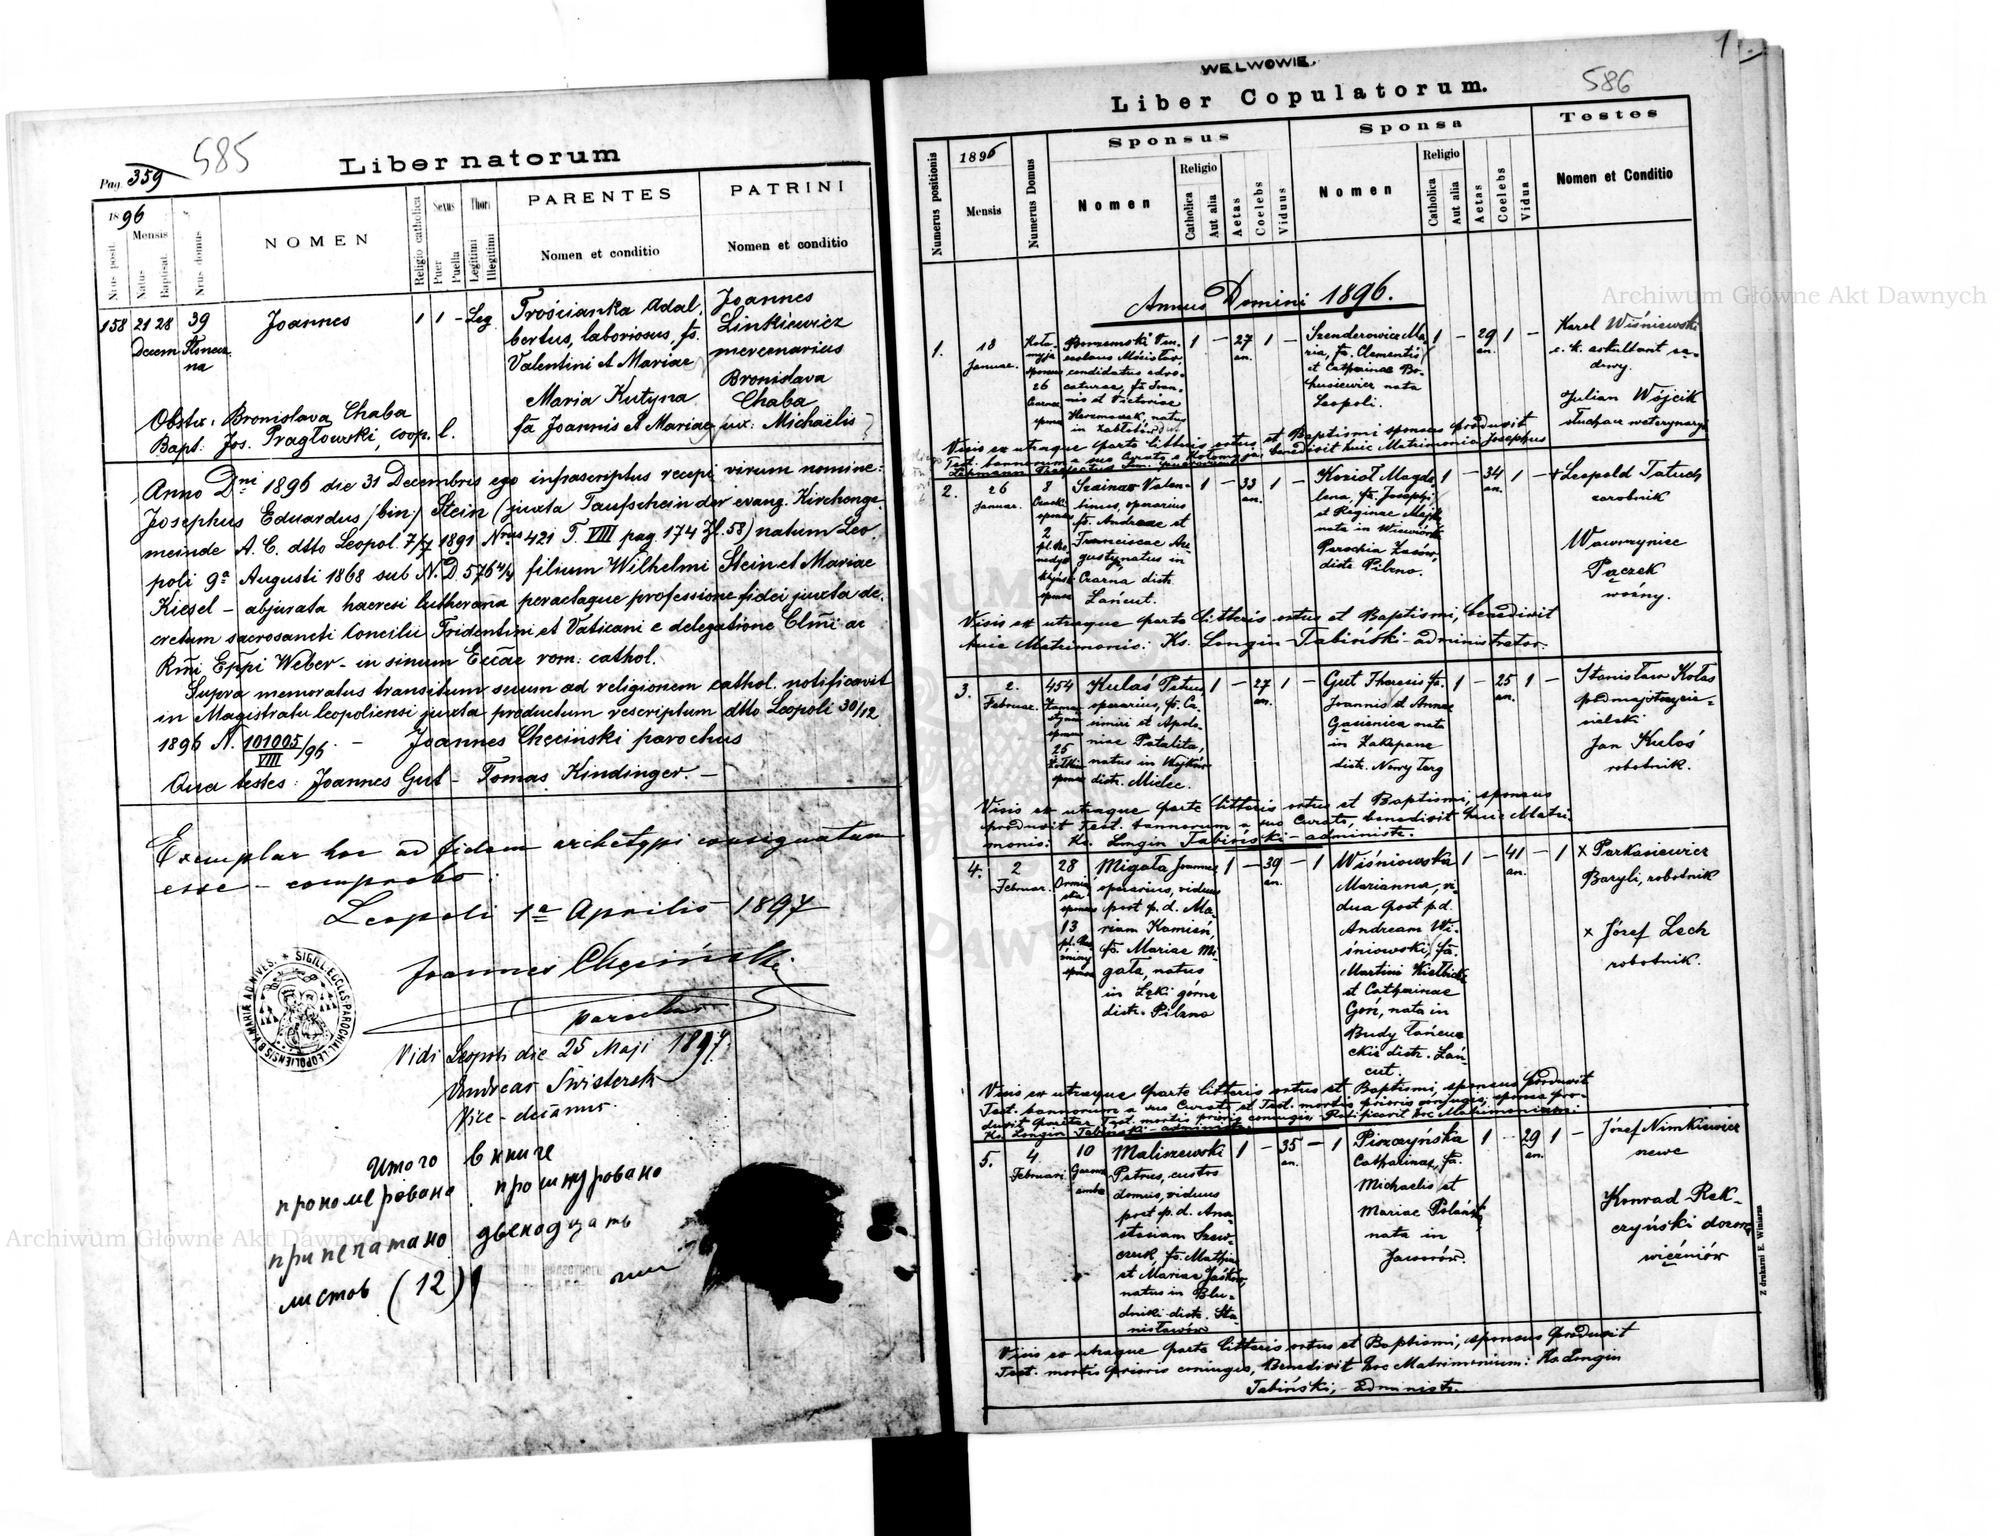 585
Liber natorum
Pag. 359
1896
Mensis
Nrus posit.
Natus
Baptisat.
Nrus domus
NOMEN
Religio catholica
Sexus
Puer
Puella
Thori
Legitimi
Illegitimi
PARENTES
Nomen et conditio
PATRINI
Nomen et conditio
158 21 28 39 Joannes 1 1 - Leg.
Decem
na
Trościanka Adal
bertus, laboriosus, fs.
Valentini et Mariae
Maria Kutyna
fa Joannis et Mariae
Joannes
Linkiewicz
mercenarius
Bronislava
Chaba
ux: Michaëlis
Obstx: Bronislava Chaba
Bapt: Jos. Pragłowski, coop. l.
Anno Dni 1896 die 31 Decembris ego infrascriptus recepi virum nomine:
Josephus Eduardus (bin) Stein (juxta Taufschein der evang. Kirchenge
meinde A. C. dtto Leopol. 7/4 1891 Nrus 421 T. VIII pag. 174 Zl. 58) natum Leo
poli 9a Augusti 1868 sub N.D. 576 4/4 filium Wilhelmi Stein et Mariae
Kiesel - abjurata haeresi lutherana peractaque professione fidei juxta de
cretum sacrosancti Concilii Tridentini et Vaticani e delegatione Clmi ac
Rmi Eppi Weber - in sinum Eccae rom. cathol.
Supra memoratus transitum suum ad religionem cathol. notificavit
in Magistratu leopoliensi juxta productum rescriptum dtto Leopoli 30/12
1896 N. 101005/96 - Joannes Chęciński parochus
VIII
Qua testes: Joannes Gut - Tomas Kindinger. -
Exemplar hoc ad fidem archetypi consignatum
esse - comprobo.
Leopoli 1a Aprilis 1897
Joannes Chęciński
parochus
SIGILL. ECCLES. PAROCHIAL. LEOPOLIENSIS B.V. MARIAE AD NIVES.
Vidi Leopoli die 25 Maji 1897
Andreas
Vice-decanus
Итого в книге
прономеровано прошнуровано
припечатано двенадцать
листов (12)
WE LWOWIE.
1
586
Liber Copulatorum.
Numerus positionis
1896
Mensis
Numerus Domus
Sponsus
Nomen
Religio
Catholica
Aut alia
Aetas
Coelebs
Viduus
Sponsa
Nomen
Religio
Catholica
Aut alia
Aetas
Coelebs
Vidua
Testes
Nomen et Conditio
Annus Domini 1896.
1. 18
Januar.
26
candidatus advo-
caturae, fs Joan-
nis et Victoriae
in Zabłotów
1 - 27 1 -
an.
Szenderowicz Ma-
ria, fa. Clementis
et Catharinae Bo-
husiewicz nata
Leopoli.
1 - 29 1 -
an.
Karol Wiśniewski
c. k. auskultant są-
dowy.
Julian Wójcik
słuchacz weterynaryi
Visis ex utraque parte litteris ortus et Baptismi sponsus produxit
Test. bannorum a suo Curato e Kołomyja, benedixit huic Matrimonio Josephus
2. 26
Januar.
8
2
Valen-
tinus, operarius
fs. Andreae et
Franciscae Au-
gustyn natus in
Czarna distr.
Łańcut.
1 - 33 1 -
an.
Kozioł Magda
lena, fa. Josephi
et Reginae
nata in
Parochia Zasów,
distr. Pilzno.
1 - 34 1 -
an.
+ Leopold Tatuch
zarobnik
Wawrzyniec
Pączek
woźny.
Visis ex utraque parte litteris ortus et Baptismi, benedixit
huic Matrimonio: Ks. Longin Tabiński - administrator.
3. 2.
Februar.
454
25
Kułaś Petrus
operarius, fs. Ca-
simiri et Apolo-
niae Patalita,
natus in
distr. Mielec.
1 - 27 1 -
an.
Gut Theresia fa.
Joannis et Annae
Gąsienica nata
in Zakopane
distr. Nowy Targ
1 - 25 1 -
an.
Stanisław Kołas
podmajstrzy cie-
sielski
Jan Kułoś
robotnik.
Visis ex utraque parte litteris ortus et Baptismi, sponsus
produxit Test. bannorum a suo Curato, benedixit huic Matri-
monio: Ks. Longin Tabiński - administr.
4. 2
Februar.
28
13
Migała Joannes
operarius, viduus
post p. d. Ma-
riam Kamień,
fs. Mariae Mi-
gała, natus
in Łęki górne
distr. Pilzno
1 - 39 - 1
an.
Wiśniowska
Marianna, vi-
dua post p.d.
Andream Wi-
śniowski, fa.
Martini
et Catharinae
Goń, nata in
Budy Łańcuc
kie distr. Łań
cut.
1 - 41 - 1
an.
x Parkasiewicz
Baryli, robotnik
x Józef Lech
robotnik.
Visis ex utraque parte litteris ortus et Baptismi, sponsus produxit
Test. bannorum a suo Curato et Test. mortis prioris conjugis, sponsa pro-
duxit pariter Test. mortis prioris conjugis, - Ratificavit hoc Matrimonium:
Ks. Longin Tabiński - administr.
5. 4
Februari
10
Maliszewski
Petrus, custos
domus, viduus
post p. d. Ana-
stasiam Szew-
czuk, fs. Mathiae
et Mariae
natus in Blu-
dniki distr. Sta-
nisławów
1 - 35 - 1
an.
Piszczyńska
Catharina, fa.
Michaelis et
Mariae
nata in
Jaworów.
1 - 29 1 -
an.
Józef Nimkiewicz
Konrad Rek-
czyński dozorca
więźniów
Visis ex utraque parte litteris ortus et Baptismi, sponsus produxit
Test. mortis prioris coniugis, Benedixit hoc Matrimonium: Ks. Longin
Tabiński, - administr.
Z drukarni E. Winiarza
Archiwum Główne Akt Dawnych
Archiwum Główne Akt Dawnych